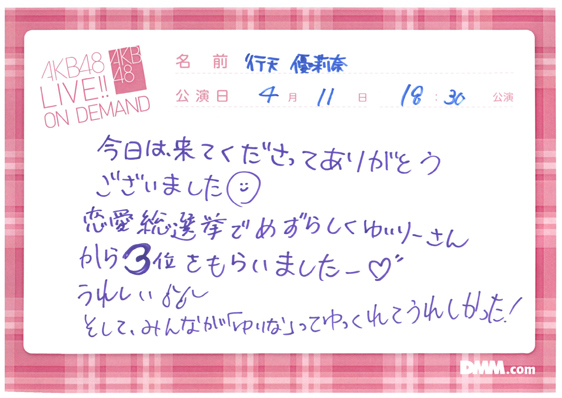 AKB48
LIVE!!
ON DEMAND
AKB
48
名前 行天 優莉奈
公演日 4月11日 18:30 公演
今日は、来てくださってありがとう
ございました
恋愛総選挙でめずらしくゆいりーさん
から3位をもらいましたー♡
うれしい
そして、みんなが「ゆいな」ってゆってくれてうれしかった!
DMM.com